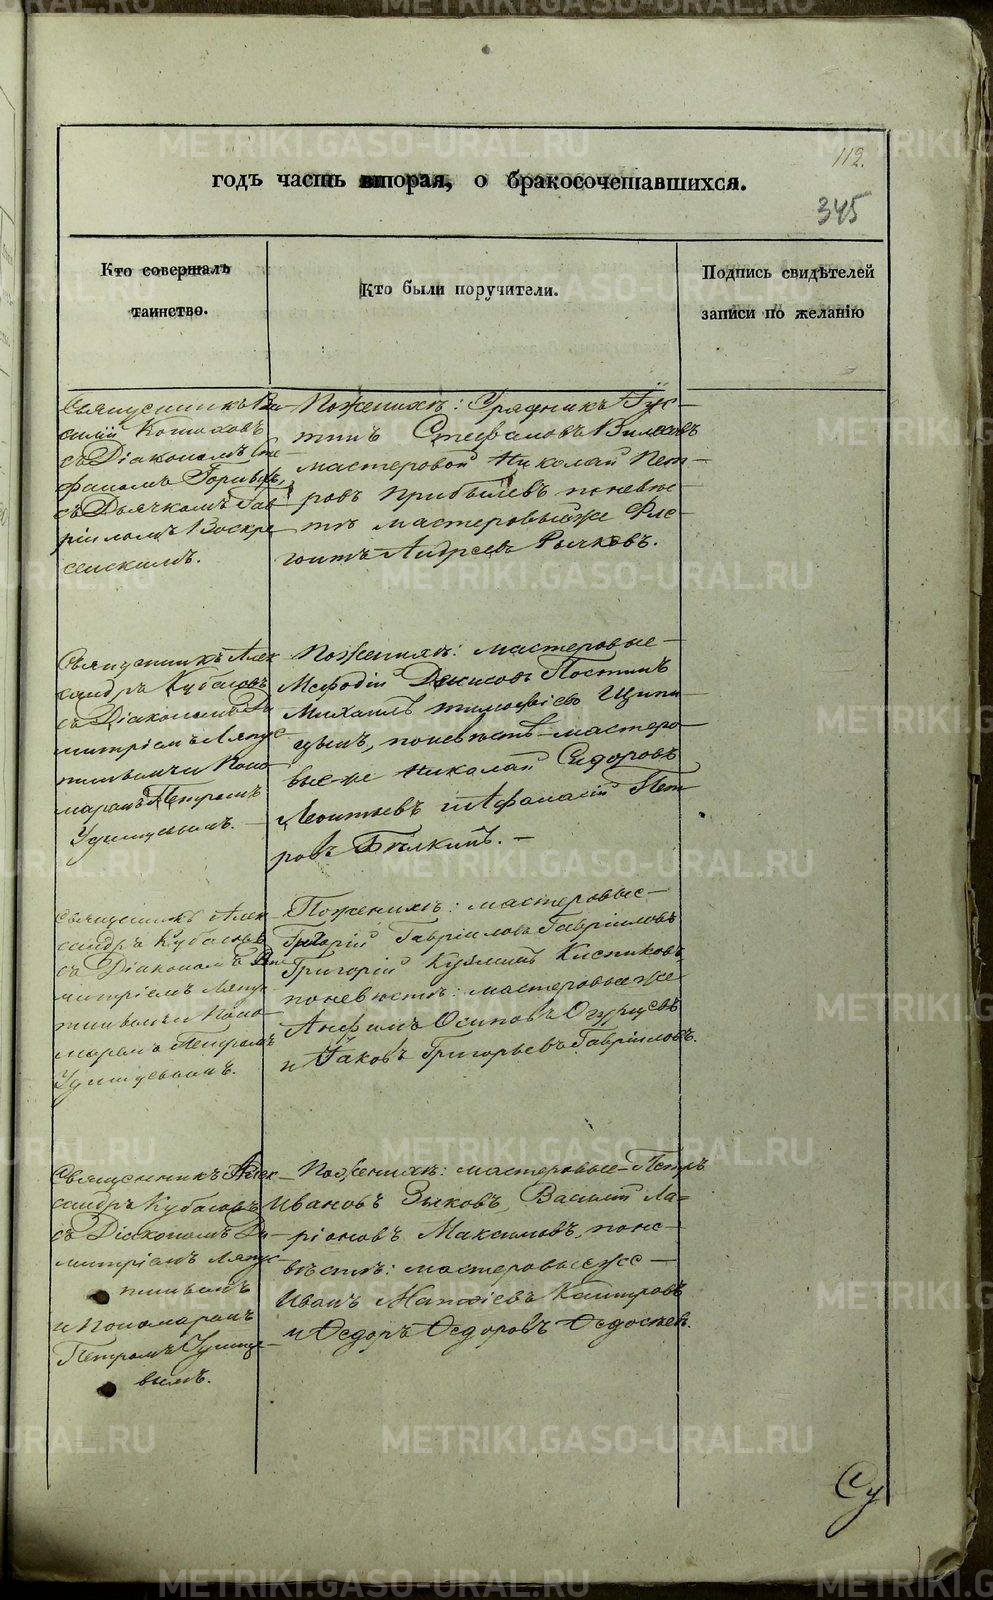 METRIKI.GASO-URAL.RU
112.
годъ часть вторая, о бракосочетавшихся.
345
Кто совершалъ
таинство.
Кто были поручители.
Подпись свидѣтелей
записи по желанію
Священникъ Ва-
силій
съ Діакономъ Сте
фаномъ
съ Дьячкомъ Гав
ріиломъ Воскре
сенскимъ.
Поженихѣ: Іус-
тинъ Стефановъ Вилесовъ
мастеровой Николай Пет-
ровъ Прибылевъ поневѣс-
тѣ мастеровыеже Фле-
гонтъ Андреевъ Рычковъ.
Священникъ Алек
сандръ Кубасовъ
съ Діакономъ Ди
митріемъ Ляпус
тинымъ и Поно
маремъ Петромъ
Удинцевымъ.
Поженихѣ: мастеровые-
Мефодій Денисовъ Постинъ
Михаилъ Тимофѣевъ Щипи-
цынъ, поневѣстѣ-мастеро-
выеже Николай Сидоровъ
Леонтьевъ и Афанасій Пет
ровъ Бѣлкинъ.-
Священникъ Алек
сандръ Кубасовъ
съ Діакономъ Ди
митріемъ Ляпус-
тинымъ и Поно-
маремъ Петромъ
Удинцевымъ.
Поженихѣ: мастеровые-
Григорій Гавріиловъ Гавріиловъ
Григорій Кузминъ Кистиковъ,
поневѣстѣ: мастеровыеже
Анфимъ Осиповъ Огурцевъ
и Яковъ Григорьевъ Гавріиловъ.
Священникъ Алек-
сандръ Кубасовъ
съ Діакономъ Ди-
митріемъ Ляпус-
тинымъ
и Пономаремъ
Петромъ Удинце-
вымъ.
Поженихѣ: мастеровые-Петръ
Ивановъ Зыковъ, Василій Ла-
ріоновъ Максимовъ, поне-
вѣстѣ: мастеровыеже-
Иванъ Матвіевъ
и Ѳедоръ Ѳедоровъ Ѳедосѣев.
Су